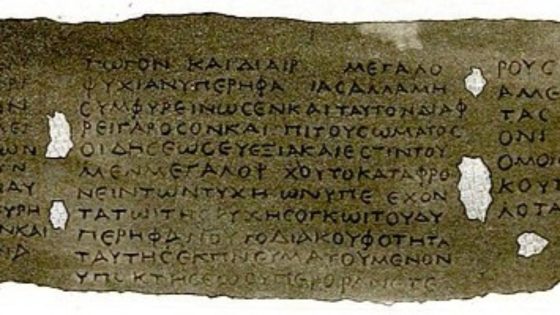 ΕΝ
ΛΕΣ
ΩΝ
ΥΝ
ΒΑΥ
ΕΥΡΗ
ΝΚΑΙ
ΝΔ
ΤΡΟΠΟΝ ΚΑΙ ΔΙΑΙΡ ΜΕΓΑΛΟ
ΨΥΧΙΑΝ ΥΠΕΡΗΦΑ ΙΑϹ ΑΛΛΑΜΗ
ϹΥΜΦΥΡΕΙΝΩϹΕΝΚΑΙΤΑΥΤΟΝΔΙΑΦ
ΡΕΙΓΑΡΟϹΟΝΚΑΙ ΠΙΤΟΥϹΩΜΑΤΟϹ
ΟΙΔΗϹΕΩϹΕΥΕΞΙΑΚΑΙΕϹΤΙΝΤΟΥ
ΜΕΝΜΕΓΑΛΟΨ ΧΟΥΤΟΚΑΤΑΦΡΟ
ΝΕΙΝΤΩΝΤΥΧΗ ΩΝΥΠΕ ΕΧΟΝ
ΤΑΤΩΙΤΗϹΨΥΧΗϹΟΓΚΩΙΤΟΥΔΥ
ΠΕΡΗΦΑΝΟΥ ΤΟΔΙΑΚΟΥΦΟΤΗΤΑ
ΤΑΥΤΗϹΕΚΠΝΕΥΜΑΤΟΥΜΕΝΟΝ
ΡΟΥϹ
ΑΛΛΕ
ΤΑϹ
ΟΝΙ
ΟΜΟΛ
ΚΟΥΤ
ΛΟΤΑ